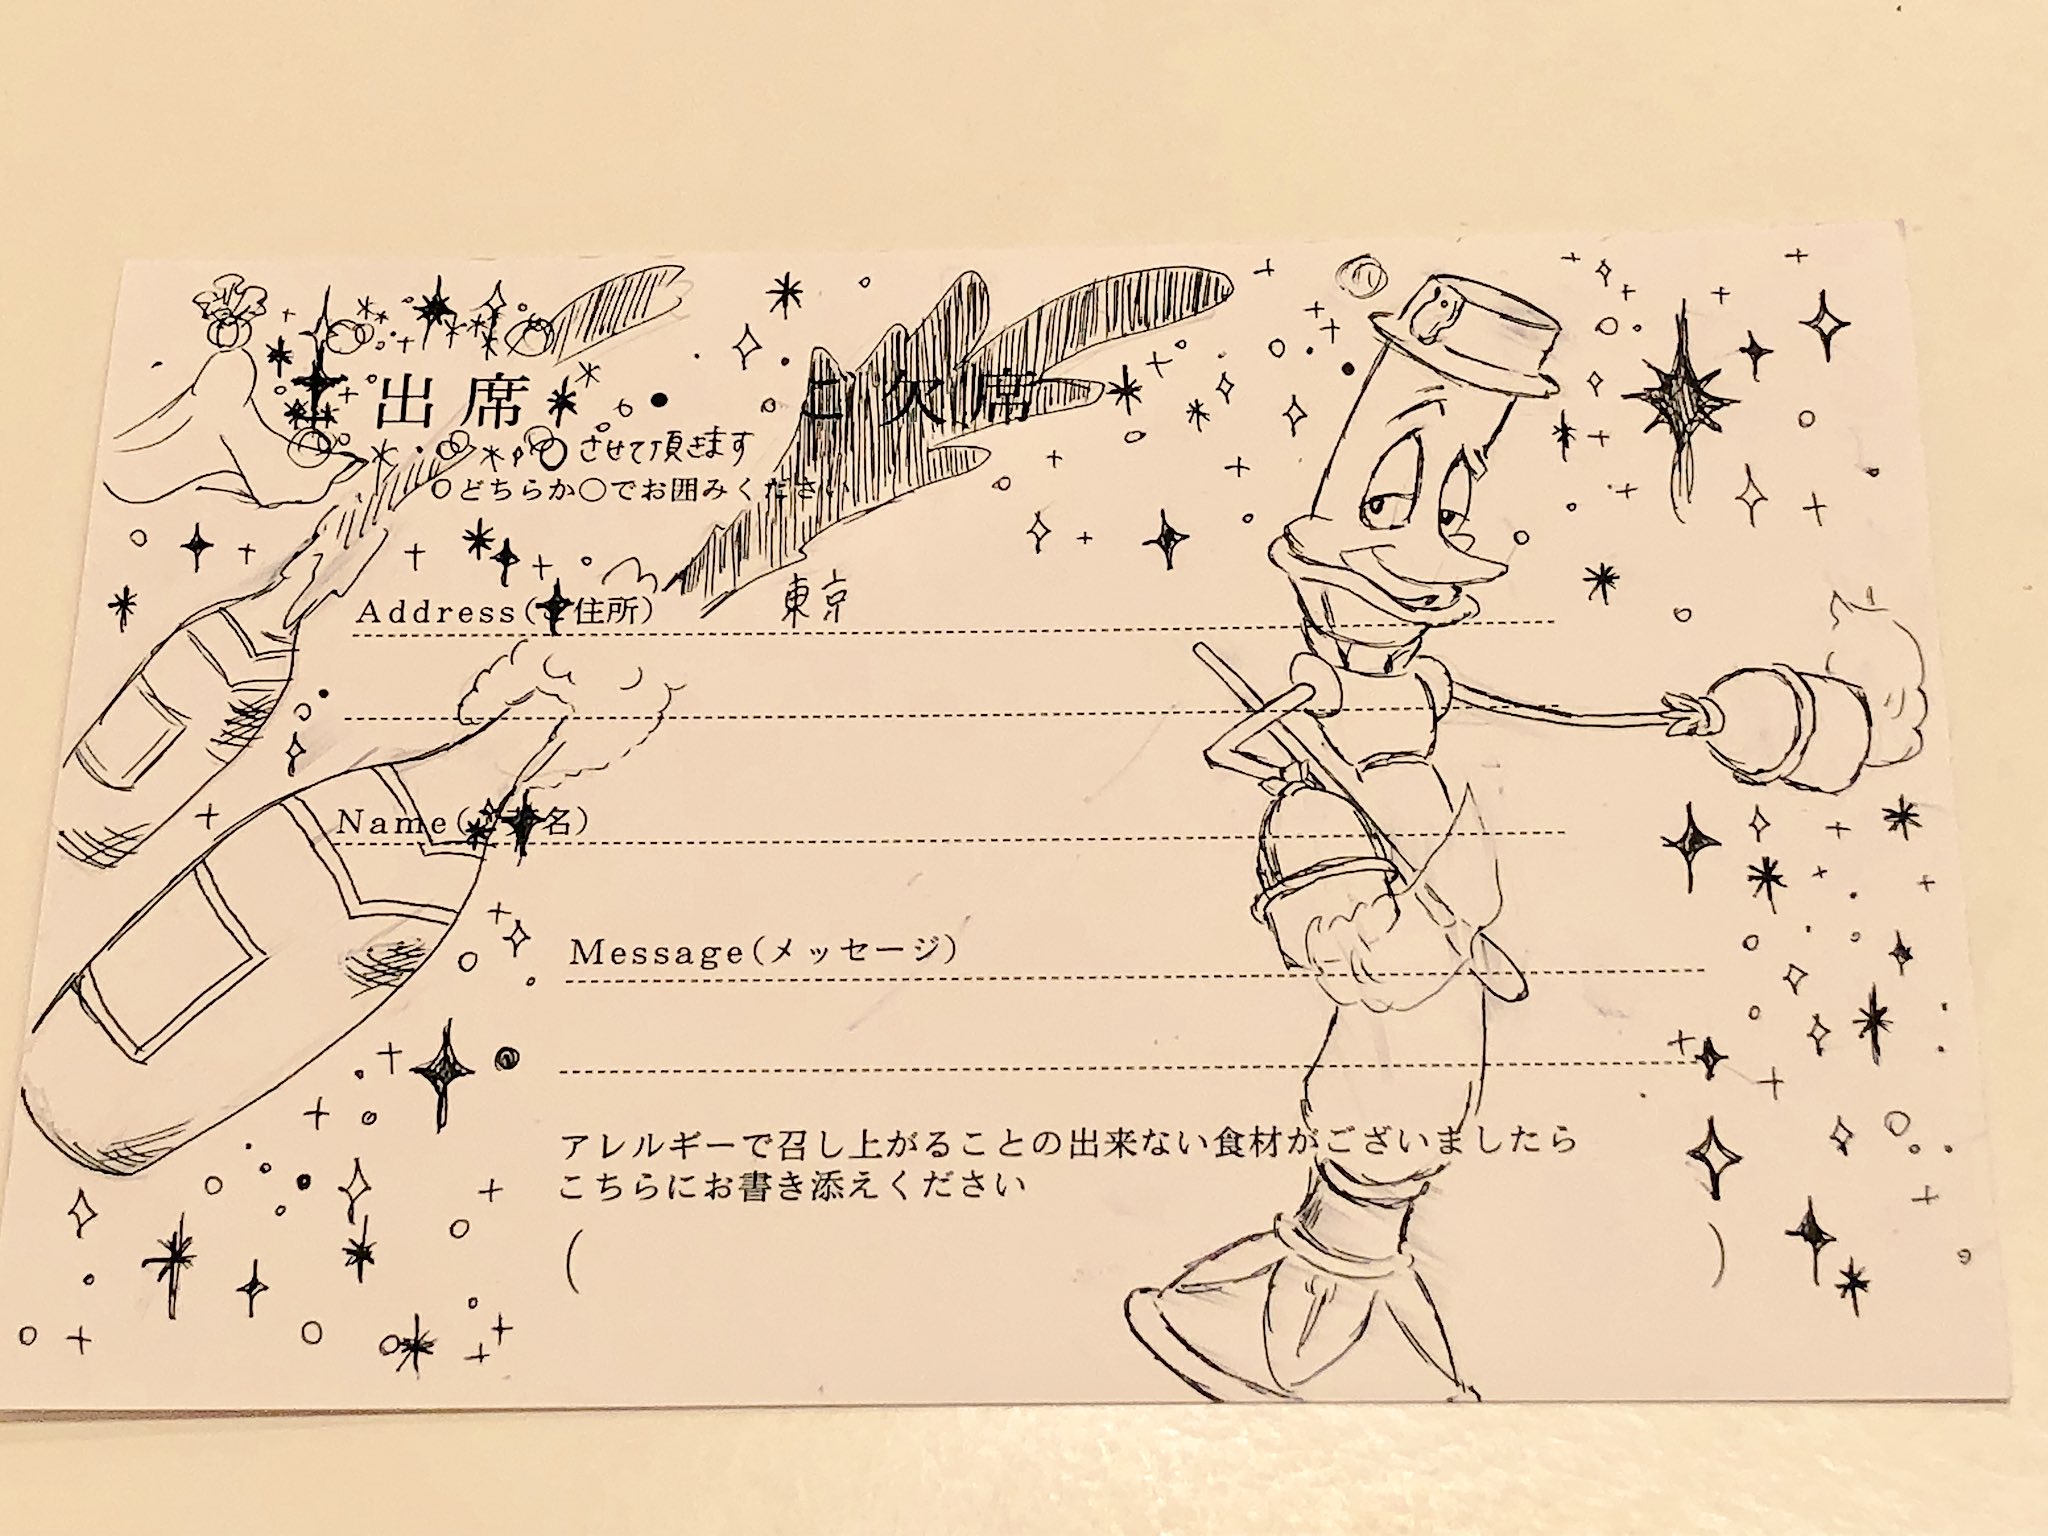 出席 ご欠席
させて頂きます
どちらか○でお囲みください
東京
Address(ご住所)
Name(ご芳名)
Message(メッセージ)
アレルギーで召し上がることの出来ない食材がございましたら
こちらにお書き添えください
( )